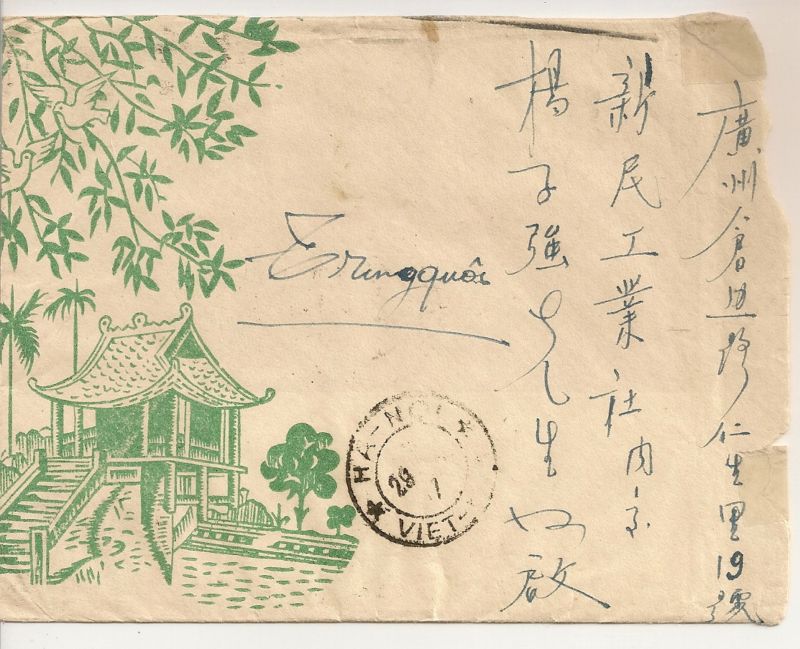 廣州倉边路仁生里19號
新民工業社内交
楊子強先生啟
Trungquôc
HA-NOI
29 1
VIET